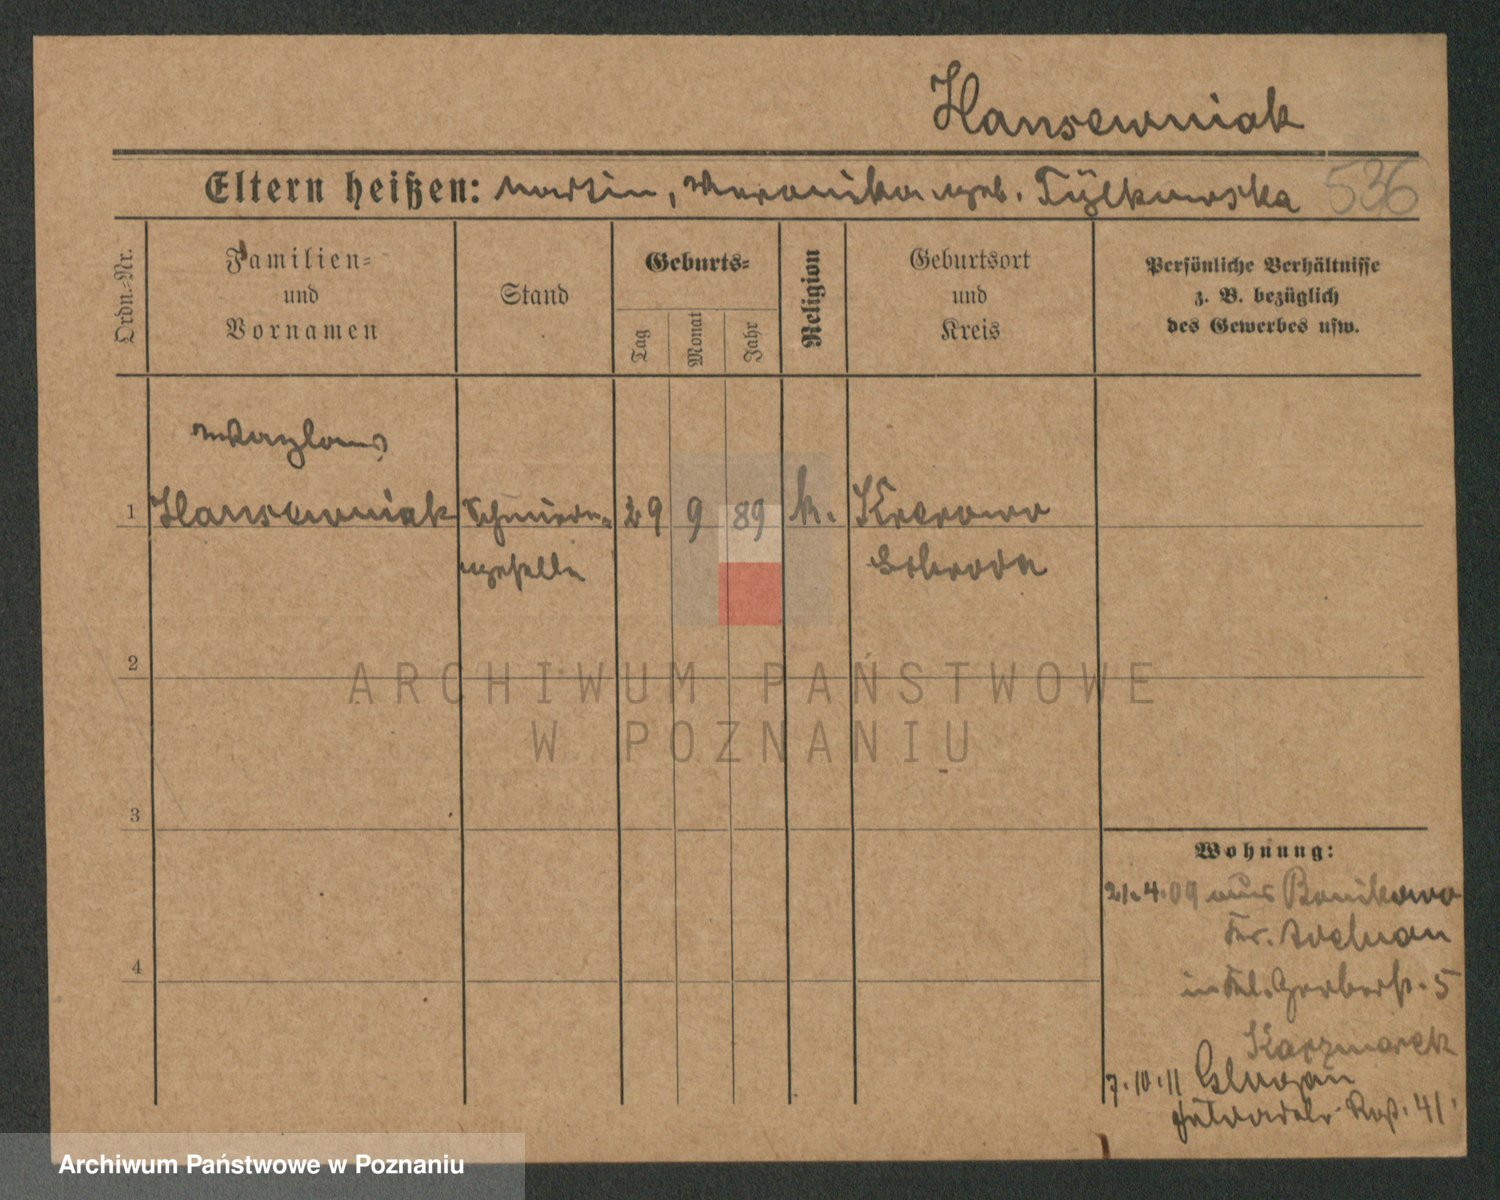 Hansewniak
Eltern heißen: Martin, Veronika geb. Tylkowska 536
Ordn.-Nr.
Familien-
und
Vornamen
Stand
Geburts-
Tag
Monat
Jahr
Religion
Geburtsort
und
Kreis
Persönliche Verhältnisse
z. B. bezüglich
des Gewerbes usw.
Wazlaus
1 Hansewniak 29 9 89 k. Krerowo
geselle Schroda
2
ARCHIWUM PAŃSTWOWE
W POZNANIU
3
Wohnung:
21.4.09 aus Bonikowo
Kr.
in Kl. Gerberst. 5
4
Kaczmarek
7.10.11 Glogau
41
Archiwum Państwowe w Poznaniu